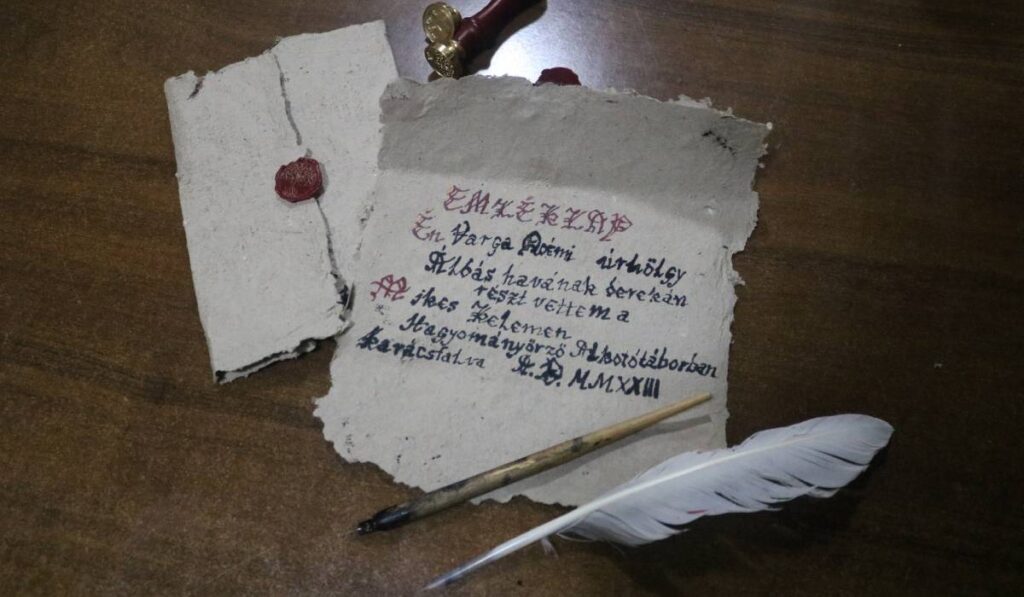 EMLÉKLAP
Én Varga Noémi úrhölgy
Áldás havának derekán
részt vettem a
Mikes Kelemen
Hagyományőrző Alkotótáborban
Karácsfalva A.D. MMXXIII